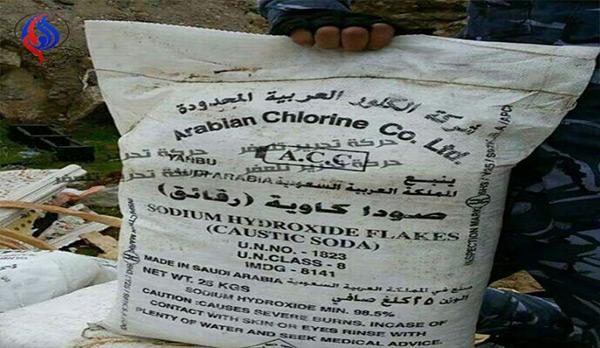 شركة الكلور العربية المحدودة
Arabian Chlorine Co. Ltd.
A.C.C.
YANBU
ينبع
SAUDI ARABIA المملكة العربية السعودية
صودا كاوية (رقائق)
SODIUM HYDROXIDE FLAKES
(CAUSTIC SODA)
U.N.NO. - 1823
U.N.CLASS - 8
IMDG - 8141
MADE IN SAUDI ARABIA صنع في المملكة العربية السعودية
NET WT. 25 KGS الوزن ٢٥ كلغ صافي
SODIUM HYDROXIDE MIN. 98.5%
CAUTION: CAUSES SEVERE BURNS. INCASE OF
CONTACT WITH SKIN OR EYES RINSE WITH
PLENTY OF WATER AND SEEK MEDICAL ADVICE.
INSPECTION MARK